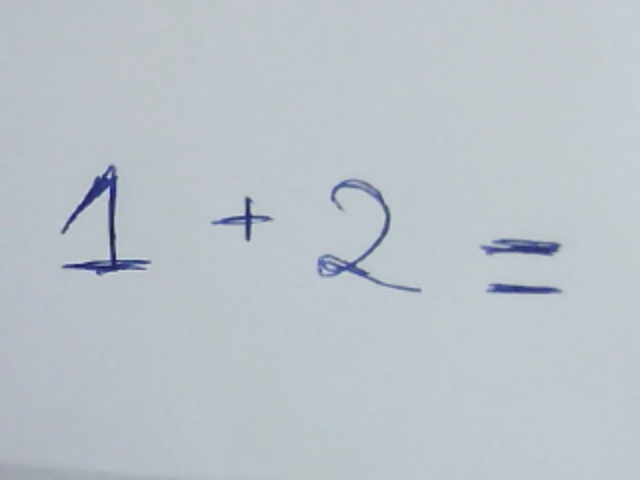 1 + 2 =